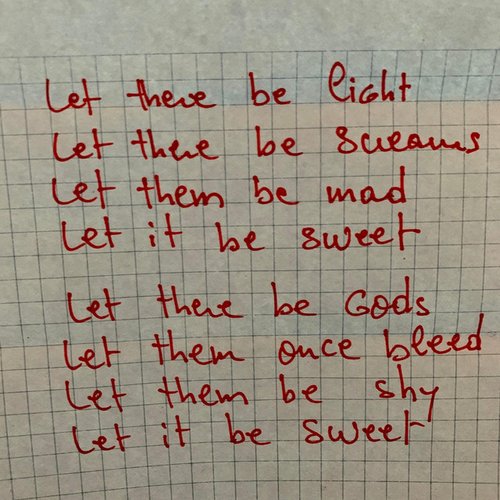 Let there be light
Let there be screams
Let them be mad
Let it be sweet
Let there be Gods
Let them once bleed
Let them be shy
Let it be sweet